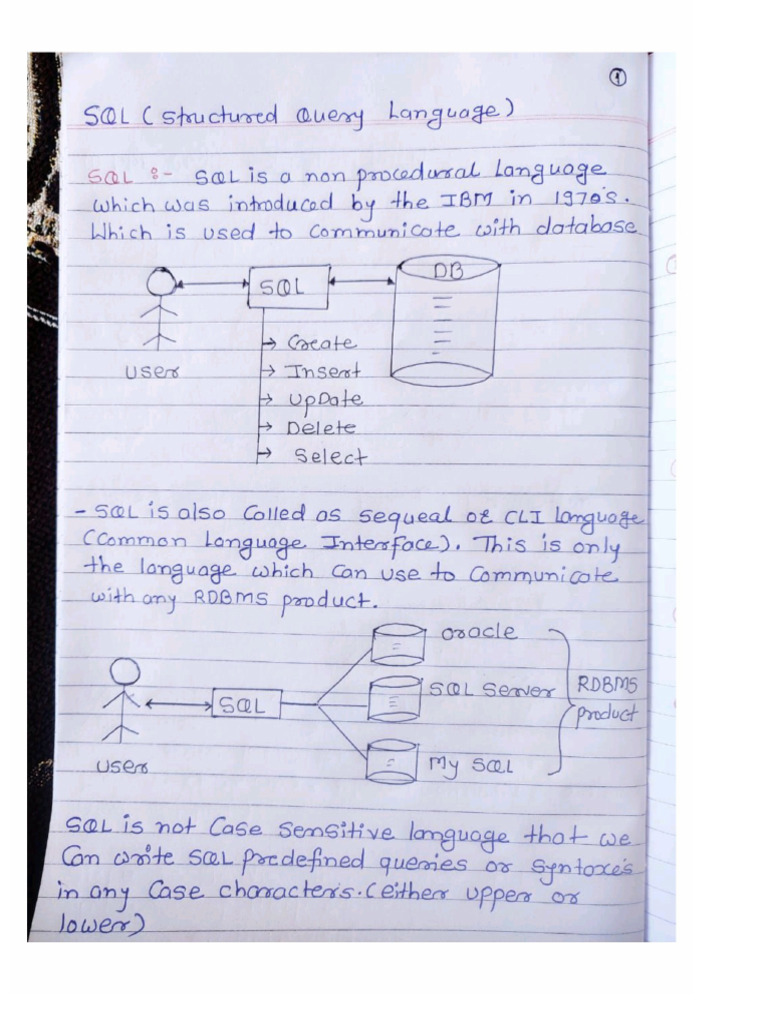 1
SQL (Structured Query Language)
SQL :- SQL is a non procedural Language
which was introduced by the IBM in 1970's.
Which is used to communicate with database
SQL
DB
user
→ Create
→ Insert
→ UpDate
→ Delete
→ Select
- SQL is also Called as sequeal or CLI language
(Common Language Interface). This is only
the language which can use to communicate
with any RDBMS product.
user
SQL
Oracle
SQL Server
My SQL
RDBMS
product
SQL is not Case sensitive language that we
Can write SQL predefined queries or syntaxe's
in any Case characters. (either upper or
lower)